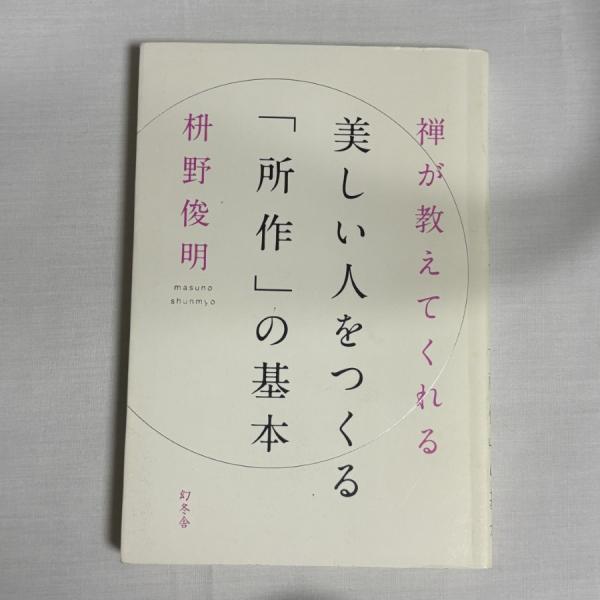 禅が教えてくれる
美しい人をつくる
「所作」の基本
枡野俊明
masuno
shunmyo
幻冬舎